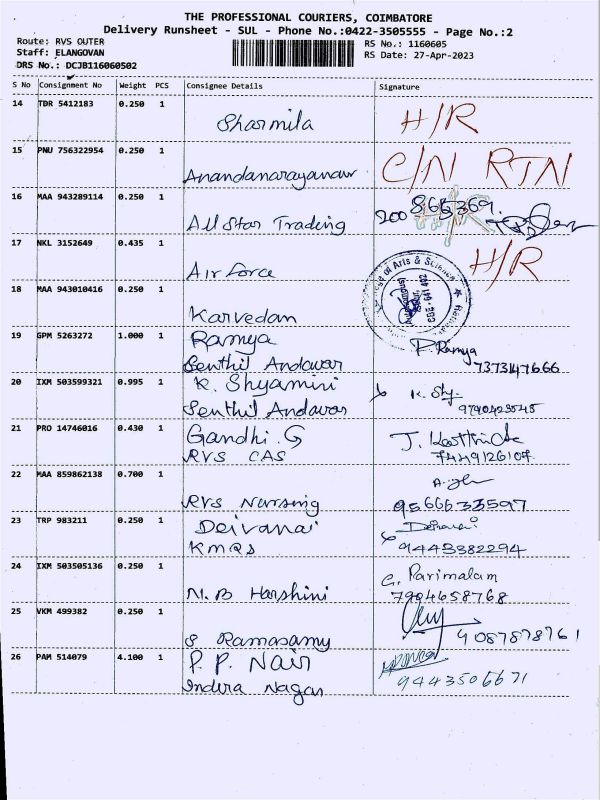 THE PROFESSIONAL COURIERS, COIMBATORE
Delivery Runsheet - SUL - Phone No.:0422-3505555 - Page No.:2
Route: RVS OUTER
Staff: ELANGOVAN
DRS No.: DCJB116060502
RS No.: 1160605
RS Date: 27-Apr-2023
S No Consignment No Weight PCS Consignee Details Signature
14 TDR 5412183 0.250 1
Sharmila H/R
15 PNU 756322954 0.250 1
Anandanarayanan C/N RTN
16 MAA 943289114 0.250 1
All Star Trading
17 NKL 3152649 0.435 1
Air force H/R
18 MAA 943010416 0.250 1
Karvedan
of Arts & Science
19 GPM 5263272 1.000 1 Ramya P. Ramya
Senthil Andavar 7373147666
20 IXM 503599321 0.995 1 K. Shyamini K. Shy
Senthil Andavar
21 PRO 14746016 0.430 1 Gandhi. G
RVS CAS 7449126107
22 MAA 859862138 0.700 1
RVS Nursing 9566633597
23 TRP 983211 0.250 1 Deivanai
KMRS 9443382294
24 IXM 503505136 0.250 1 G. Parimalam
N. B Harshini 7904658768
25 VKM 499382 0.250 1
S Ramasamy 9087878761
26 PAM 514079 4.100 1 P. P. Nair
Indira Nagar 9443506671